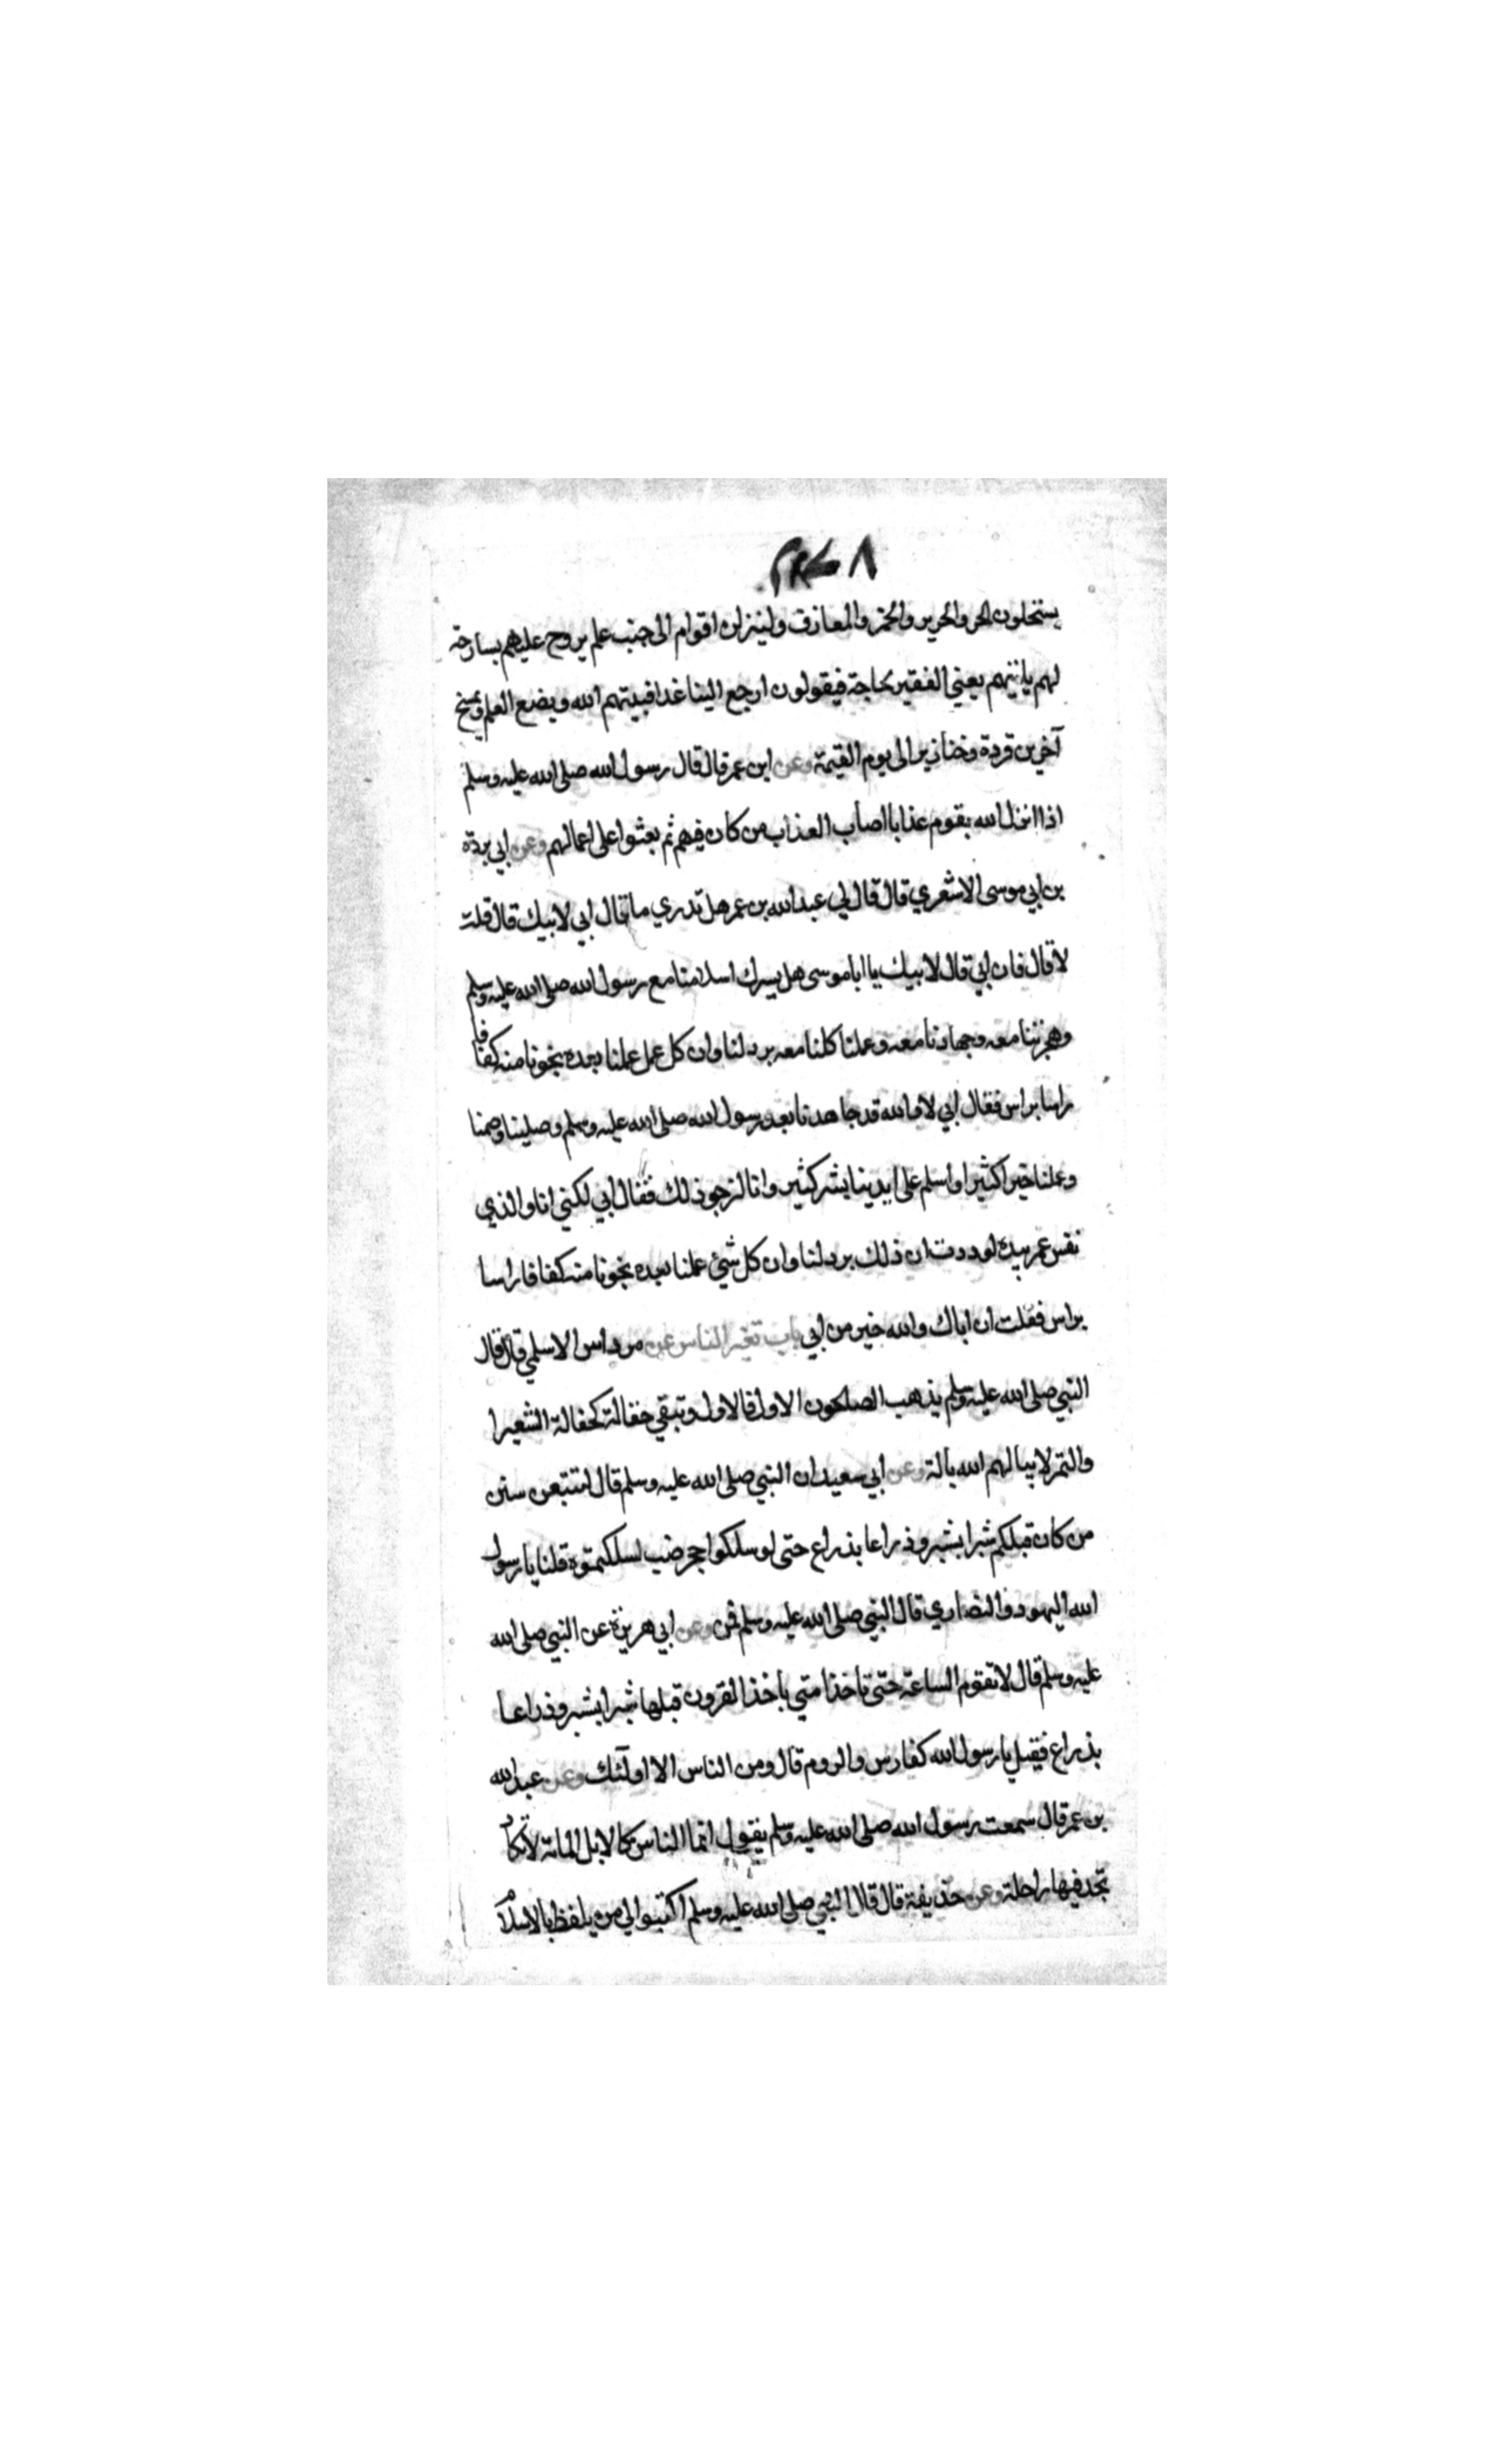 يستحلون الحر والحرير والخمر والمعازف ولينزلن اقوام الى جنب علم يروح عليهم بسارحة
لهم ياتيهم يعني الفقير لحاجة فيقولون ارجع الينا غدا فيبيتهم الله ويضع العلم ويمسخ
آخرين قردة وخنازير الى يوم القيمة وعن ابن عمر قال قال رسول الله صلى الله عليه وسلم
اذا انزل الله بقوم عذابا اصاب العذاب من كان فيهم ثم بعثوا على اعمالهم وعن ابي بردة
بن ابي موسى الاشعري قال قال لي عبد الله بن عمر هل تدري ما قال ابي لابيك قال قلت
لا قال فان ابي قال لابيك يا ابا موسى هل يسرك اسلامنا مع رسول الله صلى الله عليه وسلم
وهجرتنا معه وجهادنا معه وعملنا كلنا معه برد لنا وان كل عمل عملنا بعده نجونا منه كفافا
راسا براس فقال ابي لا والله قد جاهدنا بعد رسول الله صلى الله عليه وسلم وصلينا وصمنا
وعملنا خيرا كثيرا واسلم على ايدينا بشر كثير وانا لنرجو ذلك فقال ابي لكني انا والذي
نفس عمر بيده لوددت ان ذلك برد لنا وان كل شيئ عملنا بعده نجونا منه كفافا راسا
براس فقلت ان اباك والله خير من ابي باب تغير الناس عن مرداس الاسلمي قال قال
النبي صلى الله عليه وسلم يذهب الصلحون الاول فالاول وتبقى حفالة كحفالة الشعير ا
والتمر لا يبالهم الله بالة وعن ابي سعيد ان النبي صلى الله عليه وسلم قال لتتبعن سنن
من كان قبلكم شبرا بشبر وذراعا بذراع حتى لو سلكوا جحر ضب لسلكتموه قلنا يا رسول
الله اليهود والنصارى قال النبي صلى الله عليه وسلم فمن وعن ابي هريرة عن النبي صلى الله
عليه وسلم قال لا تقوم الساعة حتى تاخذ امتي باخذ القرون قبلها شبرا بشبر وذراعا
بذراع فقيل يا رسول الله كفارس والروم قال ومن الناس الا اولئك وعن عبد الله
بن عمر قال سمعت رسول الله صلى الله عليه وسلم يقول انما الناس كالابل المائة لا تكاد
تجد فيها راحلة وعن حذيفة قال قال النبي صلى الله عليه وسلم اكتبوا لي من يلفظ بالاسلام